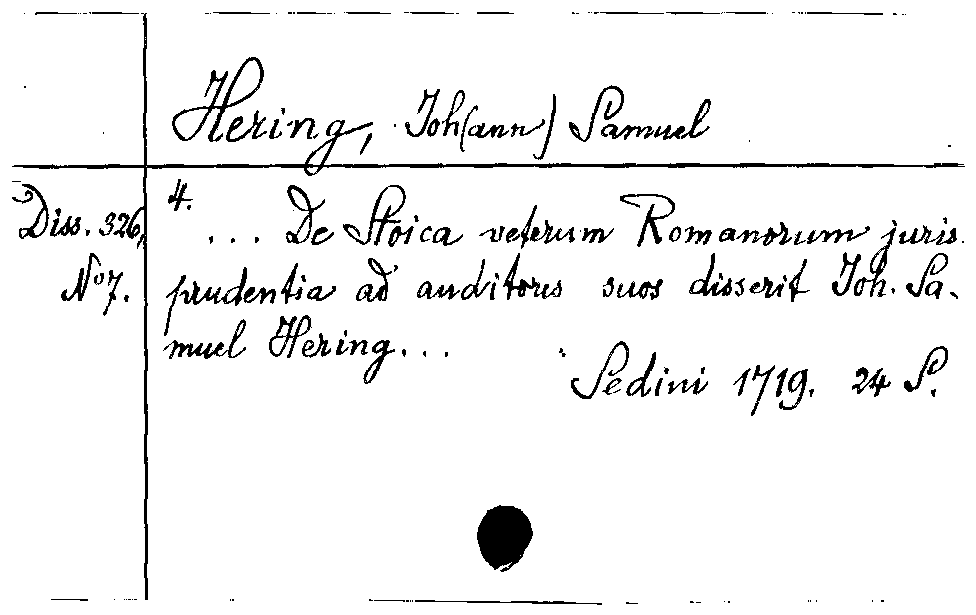 Hering, Joh(ann) Samuel
Diss. 326,
No 7.
4.
... De Stoica veterum Romanorum juris
prudentia ad auditores suos disserit Joh. Sa-
muel Hering...
Sedini 1719. 24 S.